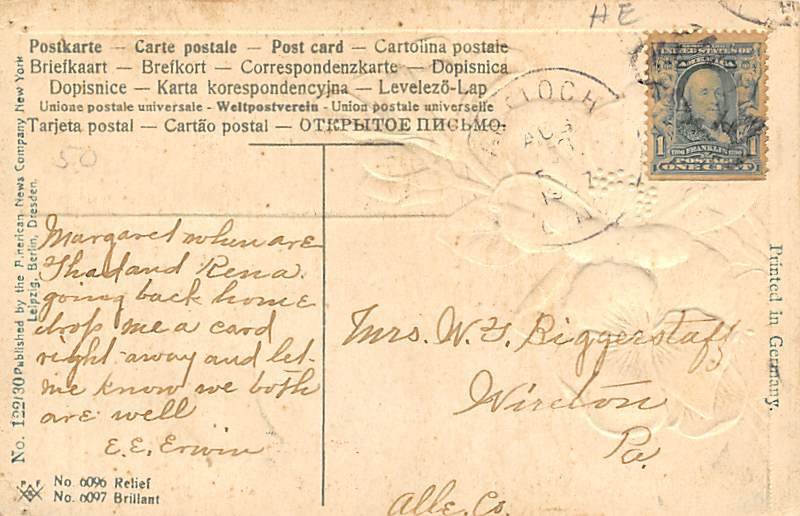 HE
Postkarte — Carte postale — Post card — Cartolina postale
Briefkaart — Brefkort — Correspondenzkarte — Dopisnica
Dopisnice — Karta korespondencyjna — Levelező-Lap
Unione postale universale - Weltpostverein - Union postale universelle
Tarjeta postal — Cartão postal — ОТКРЫТОЕ ПИСЬМО.
50
IOCH
AUG
UNITED STATES OF
AMERICA
1 FRANKLIN 1
POSTAGE
ONE CENT
Margaret when are
Thad and Rena
going back home
drop me a card
right away and let
me know we both
are well
E. E. Erwin
Mrs. W. Y. Biggerstaff
Wireton
Pa.
Alle. Co.
No. 122/30 Published by the American News Company New York
Leipzig, Berlin, Dresden.
Printed in Germany.
PF
No. 6096 Relief
No. 6097 Brillant